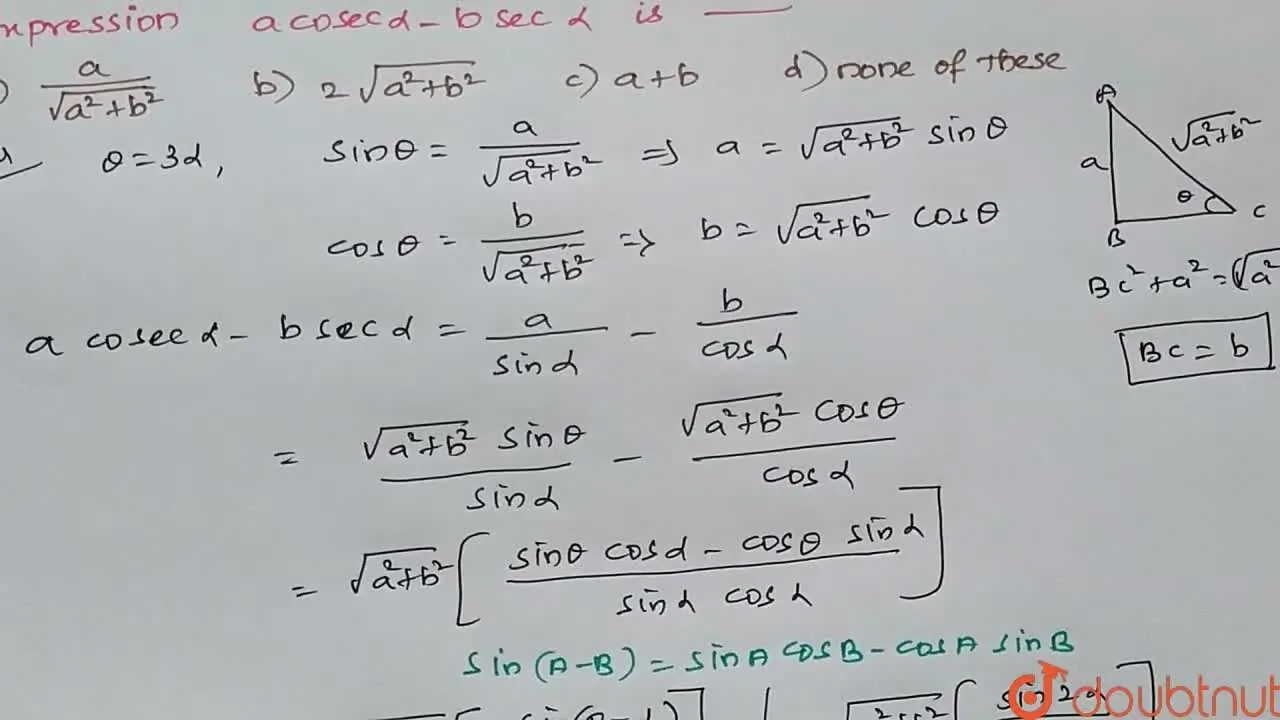 expression a cosec α - b sec α is ___
) a/√(a²+b²) b) 2√(a²+b²) c) a+b d) none of these
θ = 3α, sinθ = a/√(a²+b²) ⇒ a = √(a²+b²) sinθ
cosθ = b/√(a²+b²) ⇒ b = √(a²+b²) cosθ
A
a
√(a²+b²)
θ
B
C
BC² + a² = (√a²
BC = b
a cosec α - b sec α = a/sin α - b/cos α
= √(a²+b²) sinθ/sin α - √(a²+b²) cosθ/cos α
= √(a²+b²) [ (sinθ cos α - cosθ sin α)/(sin α cos α) ]
sin(A-B) = sinA cosB - cosA sinB
√(a²+b²) [ sin 2α ]
doubtnut